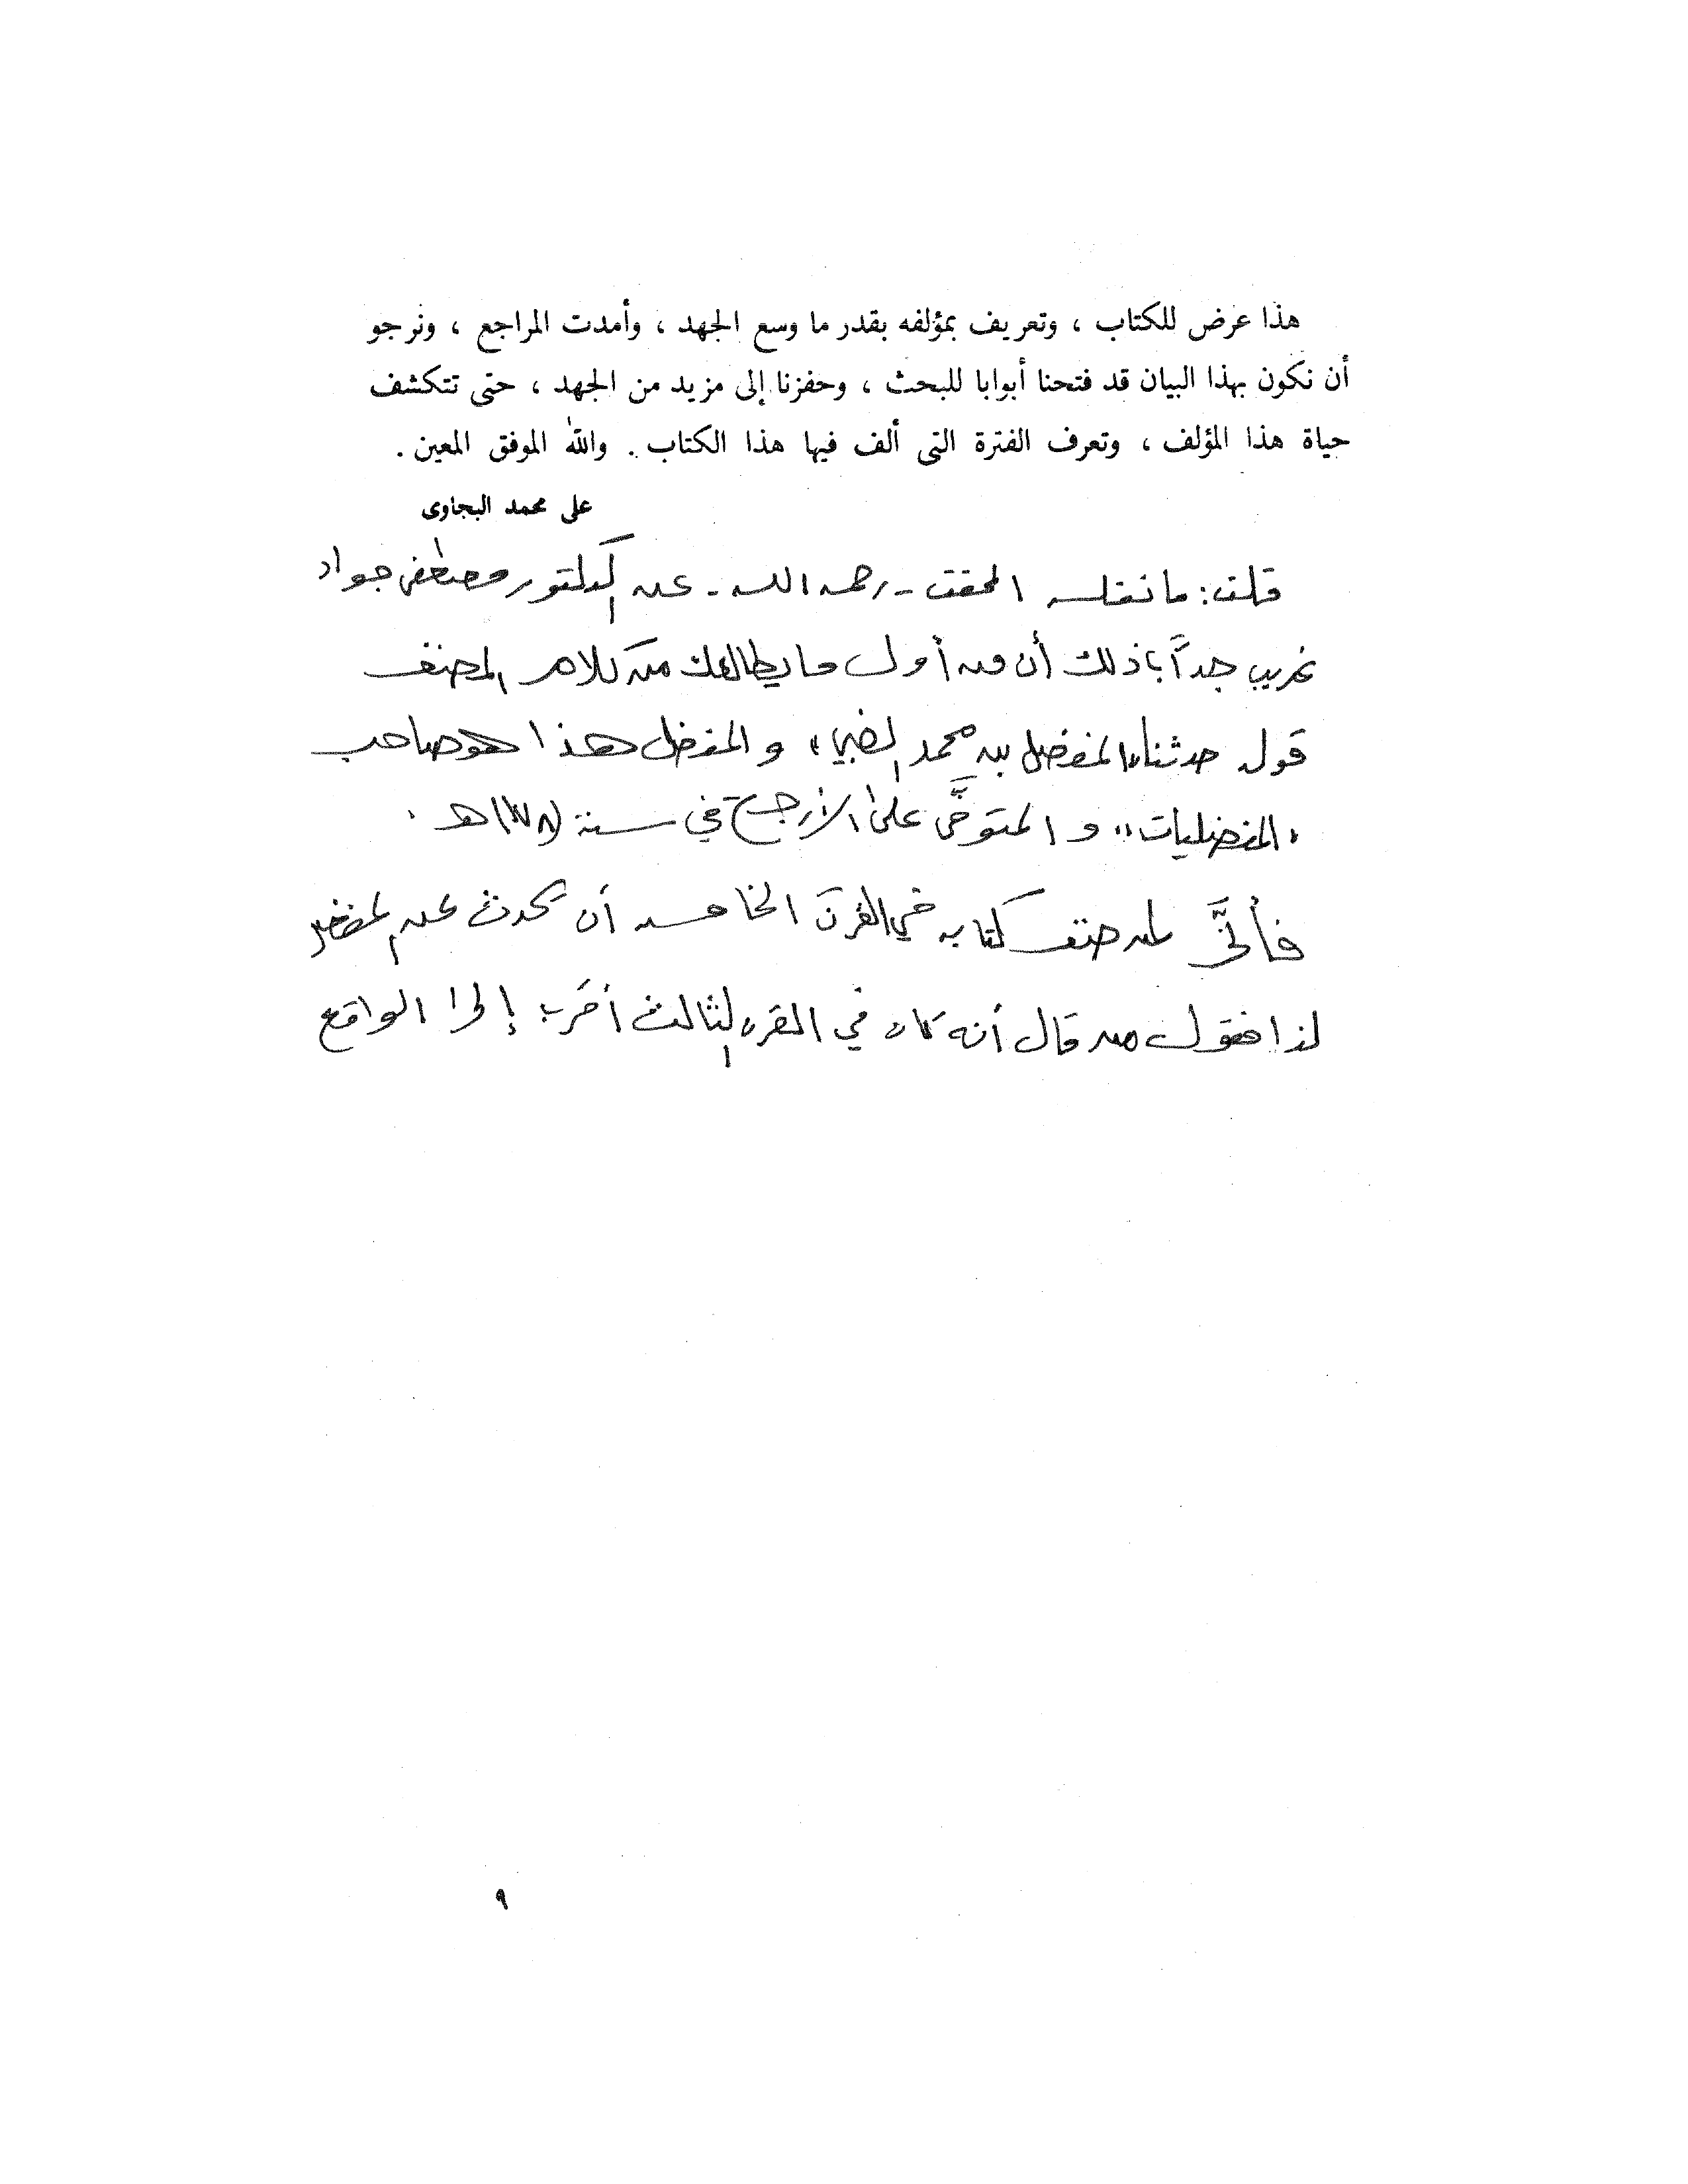 هذا عرض للكتاب ، وتعريف بمؤلفه بقدر ما وسع الجهد ، وأمدت المراجع ، ونرجو
أن نكون بهذا البيان قد فتحنا أبوابا للبحث ، وحفزنا إلى مزيد من الجهد ، حتى تتكشف
حياة هذا المؤلف ، وتعرف الفترة التى ألف فيها هذا الكتاب . والله الموفق المعين .
على محمد البجاوى
قلت: ما نقله المحقق - رحمه الله - عن الدكتور مصطفى جواد
غريب جداً ذلك أن من أول ما يطالعك من كلام المصنف
قول حدثنا «المفضل بن محمد الضبي» و المفضل هذا هو صاحب
«المفضليات» و المتوفَّى على الأرجح في سنة (١٧٨) هـ .
فأنَّى لمن صنف كتابه في القرن الخامس أن يحدث عن المفضل
لذا فقول من قال أنه كان في القرن الثالث أقرب إلى الواقع
٩